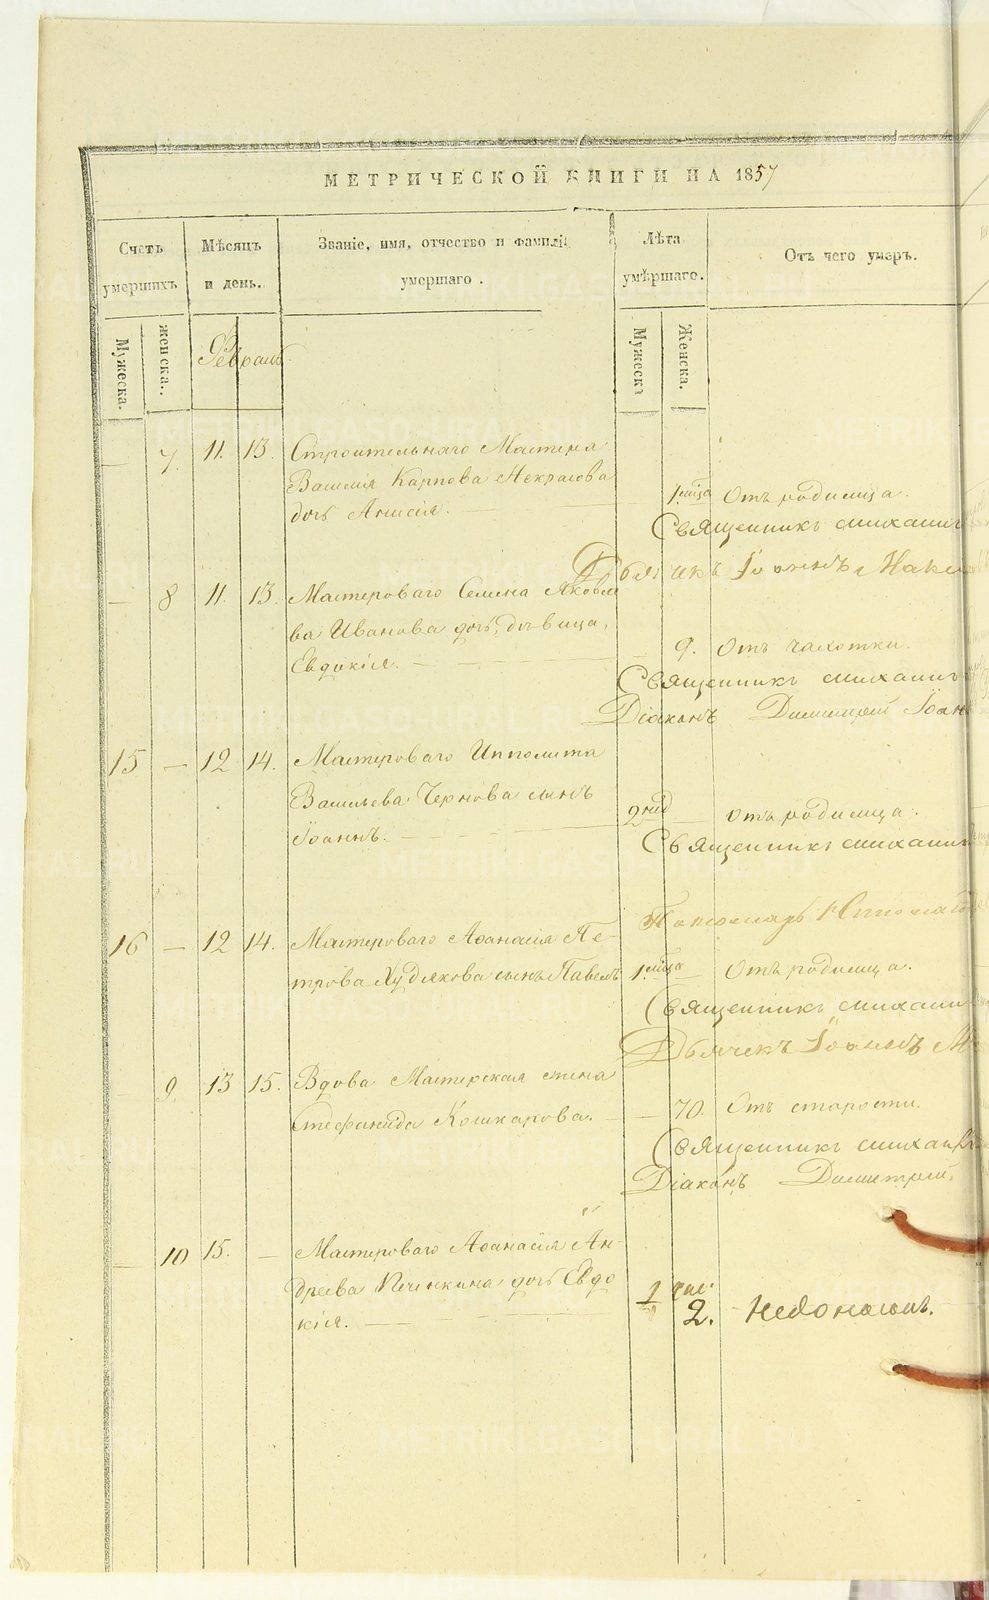 МЕТРИЧЕСКОЙ КНИГИ НА 1857
Счетъ умершихъ
Мѣсяцъ и день.
Званіе, имя, отчество и фамилія умершаго.
Лѣта умѣршаго.
Отъ чего умеръ.
Мужеска.
Женска.
Февраль
Мужеска
Женска.
— 7. 11. 13. Строительнаго Мастера
Василія Карпова Некрасова
дочь Анисія. — 1 мѣсяца Отъ родимца.
Священникъ Михаилъ
Дьячикъ Іоаннъ
— 8 11. 13. Мастероваго Семена Яковле
ва Иванова дочь, дѣвица,
Евдокія. — 9. Отъ чахотки.
Священникъ Михаилъ
Діаконъ Димитрій Іоан
15 — 12 14. Мастероваго Ипполита
Васильева Чернова сынъ
Іоаннъ. — 2 нед — отъ родимца.
Священникъ Михаилъ
Пономарь
16 — 12 14. Мастероваго Аѳанасія Пе-
трова Худякова сынъ Павелъ 1 мѣсяца — Отъ родимца.
Священникъ Михаил
Дьячекъ Іоаннъ М
— 9. 13 15. Вдова Мастерская жена
Стефанида Кошкарова. — 70. Отъ старости.
Священникъ Михаилъ
Діаконъ Димитрій
— 10 15. — Мастероваго Аѳанасія Ан-
дреева Печенкина дочь Евдо
кія. — 2. Недоносокъ.
METRIKI.GASO-URAL.RU